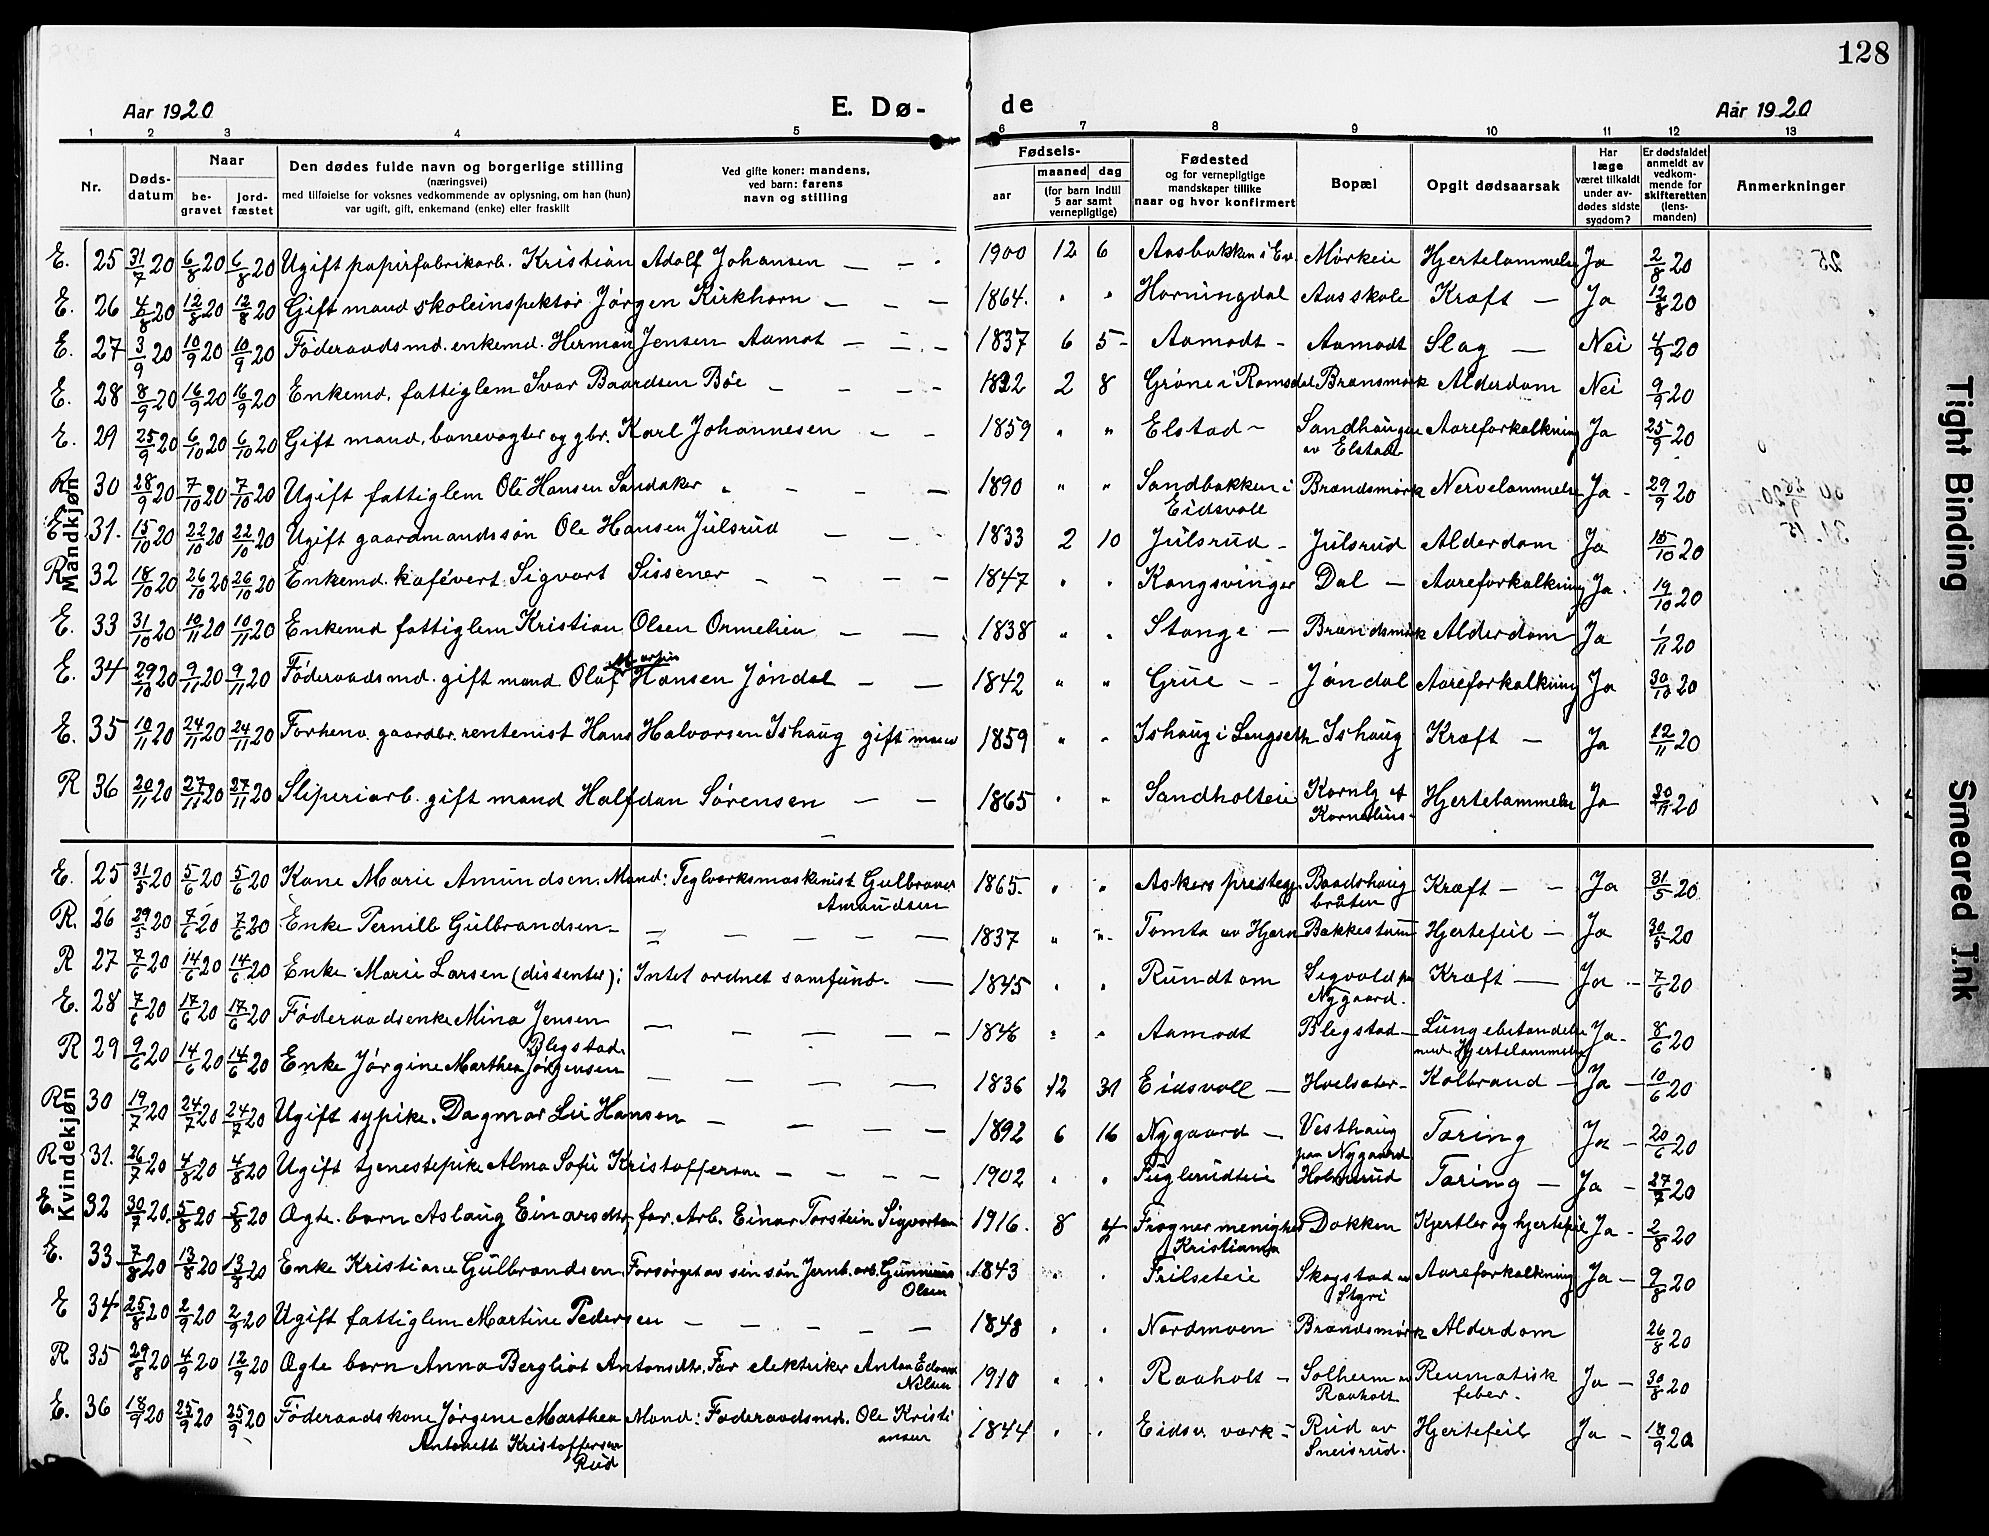 128
Aar 1920 E. Dø- de Aar 1920
1 2 3 4 5 6 7 8 9 10 11 12 13
Nr. Døds-datum Naar be-gravet jord-fæstet Den dødes fulde navn og borgerlige stilling (næringsvei) med tilføielse for voksnes vedkommende av oplysning, om han (hun) var ugift, gift, enkemand (enke) eller fraskilt Ved gifte koner: mandens, ved barn: farens navn og stilling Fødsels- aar maaned dag (for barn indtil 5 aar samt vernepligtige) Fødested og for vernepligtige mandskaper tillike naar og hvor konfirmert Bopæl Opgit dødsaarsak Har læge været tilkaldt under av-dødes sidste sygdom? Er dødsfaldet anmeldt av vedkom-mende for skifteretten (lens-manden) Anmerkninger
Mandkjøn
E. 25 31/7 20 6/8 20 6/8 20 Ugift papirfabrikarb. Kristian Adolf Johansen — - - 1900 12 6 Aasbakken i Ev. Mørkeie Hjertelammelse Ja 2/8 20
E. 26 4/8 20 12/8 20 12/8 20 Gift mand skoleinspektør Jørgen Kirkhorn — — — 1864. " " Horningdal Aasskole Kræft — Ja 12/8 20
E. 27 3/9 20 10/9 20 10/9 20 Føderaadsmd. enkemd. Herman Jensen Aamot — — — 1837 6 5 - Aamodt - Aamodt Slag — Nei 4/9 20
E. 28 8/9 20 16/9 20 16/9 20 Enkemd. fattiglem Ivar Baardsen Bøe — — — 2 8 Grøne i Romsdal Brænsmørk Alderdom Nei 9/9 20
E. 29 25/9 20 6/10 20 6/10 20 Gift mand, banevogter og gbr. Karl Johannesen — — 1859 " " Elstad - Sandhaugen av Elstad Aareforkalkning Ja 25/9 20
R 30 28/9 20 7/10 20 7/10 20 Ugift fattiglem Ole Hansen Sandaker - - - — 1890 " " Sandbakken i Eidsvoll Brændsmørk Nervelammelse Ja - 29/9 20
E 31. 15/10 20 22/10 20 22/10 20 Ugift gaardmandssøn Ole Hansen Julsrud — — 1833 2 10 Julsrud - Julsrud Alderdom Ja 15/10 20
R 32 18/10 20 26/10 20 26/10 20 Enkemd. kafévert. Sigvart Sissener - - - — 1847 " " Kongsvinger Dal — Aareforkalkning Ja. 19/10 20
E. 33 31/10 20 10/11 20 10/11 20 Enkemd fattiglem Kristian Olsen Ormelien — — 1838 " " Stange — Brændsmørk Alderdom Ja 1/11 20
E. 34 29/10 20 9/11 20 9/11 20 Føderaadsmd. gift mand Olaf Martin Hansen Jøndal — — 1842 " " Grue - - Jøndal Aareforkalkning Ja 30/10 20
E. 35 10/11 20 24/11 20 24/11 20 Forhenv. gaardbr. rentenist Hans Halvorsen Ishaug gift mand 1859 " " Ishaug i Langseth Ishaug Kræft — Ja 12/11 20
R 36 20/11 20 27/11 20 27/11 20 Sliperiarb. gift mand Halfdan Sørensen — — 1865 " " Sandholteie Kornly af Kornelius- Hjertelammelse Ja 20/11 20
Kvindekjøn
E. 25 31/5 20 5/6 20 5/6 20 Kone Marie Amundsen. Mand: Teglverksmaskinist Gulbrand Amundsen 1865. " " Askers prestegj. Baadshaug bråten Kræft — — Ja 31/5 20
R. 26 29/5 20 7/6 20 7/6 20 Enke Pernille Gulbrandsen - — — — — 1837 " " Tomta av Hjera Bakkestuen Hjertefeil — Ja 30/5 20
R 27 7/6 20 14/6 20 14/6 20 Enke Marie Larsen (dissenter); Intet ordnet samfund. — 1845 " " Rundtom Sigvald paa Nygaard. Kræft — Ja - 7/6 20
E. 28 7/6 20 17/6 20 17/6 20 Føderaadsenke Mina Jensen Blegstad — — — — 1846 " " Aamodt Blegstad - Lungebetændelse med Hjertelammelse Ja - 8/6 20
R 29 9/6 20 14/6 20 14/6 20 Enke Jørgine Marthea Jørgensen — — — — 1836 12 31 Eidsvoll — Hvelsæter - Kolbrand - Ja - 10/6 20
R 30 19/7 20 24/7 20 24/7 20 Ugift sypike. Dagmar Lie Hansen — — — — 1892 6 16 Nygaard - Vesthaug paa Nygaard Tæring Ja - 20/6 20
R 31. 26/7 20 4/8 20 4/8 20 Ugift tjenestepike Alma Sofie Kristoffersen — — — — 1902 " " Fuglerudteie Holmsrud Tæring — Ja - 27/7 20
E. 32 30/7 20. 5/8 20 5/8 20 Ægte. barn Aslaug Einarsdtr, far. Arb. Einar Torstein Sigvartsen 1916. 8 Frogner menighet Kristiania Dokken Kjertler og hjertefeil Ja - 2/8 20
E. 33 7/8 20 13/8 20 13/8 20 Enke Kristiane Gulbrandsen. Forsørget av sin søn Jernb. arb. Gunnius Olsen 1843 " Frilseteie Skogstad av Styri Aareforkalkning Ja - 9/8 20
E 34 25/8 20 2/9 20 2/9 20 Ugift fattiglem Martine Pedersen — — — — — 1848 " " Nordmoen Brændsmørk Alderdom 26/8 20
R 35 29/8 20 4/9 20 12/9 20 Ægte barn Anna Bergliot Antonsdtr. Far elektriker Anton Edvard Nilsen 1910 " " Raaholt - Solheim av Raaholt Reumatisk feber. Ja - 30/8 20
E. 36 18/9 20 25/9 20 25/9 20 Føderaadskone Jørgine Marthea Antonette Kristoffersen Rud Mand: Føderaadsmd. Ole Kristiansen 1844 " " Eidsv. værk - Rud av Sneisrud. Hjertefeil Ja - 18/9 20
Tight Binding
Smeared Ink